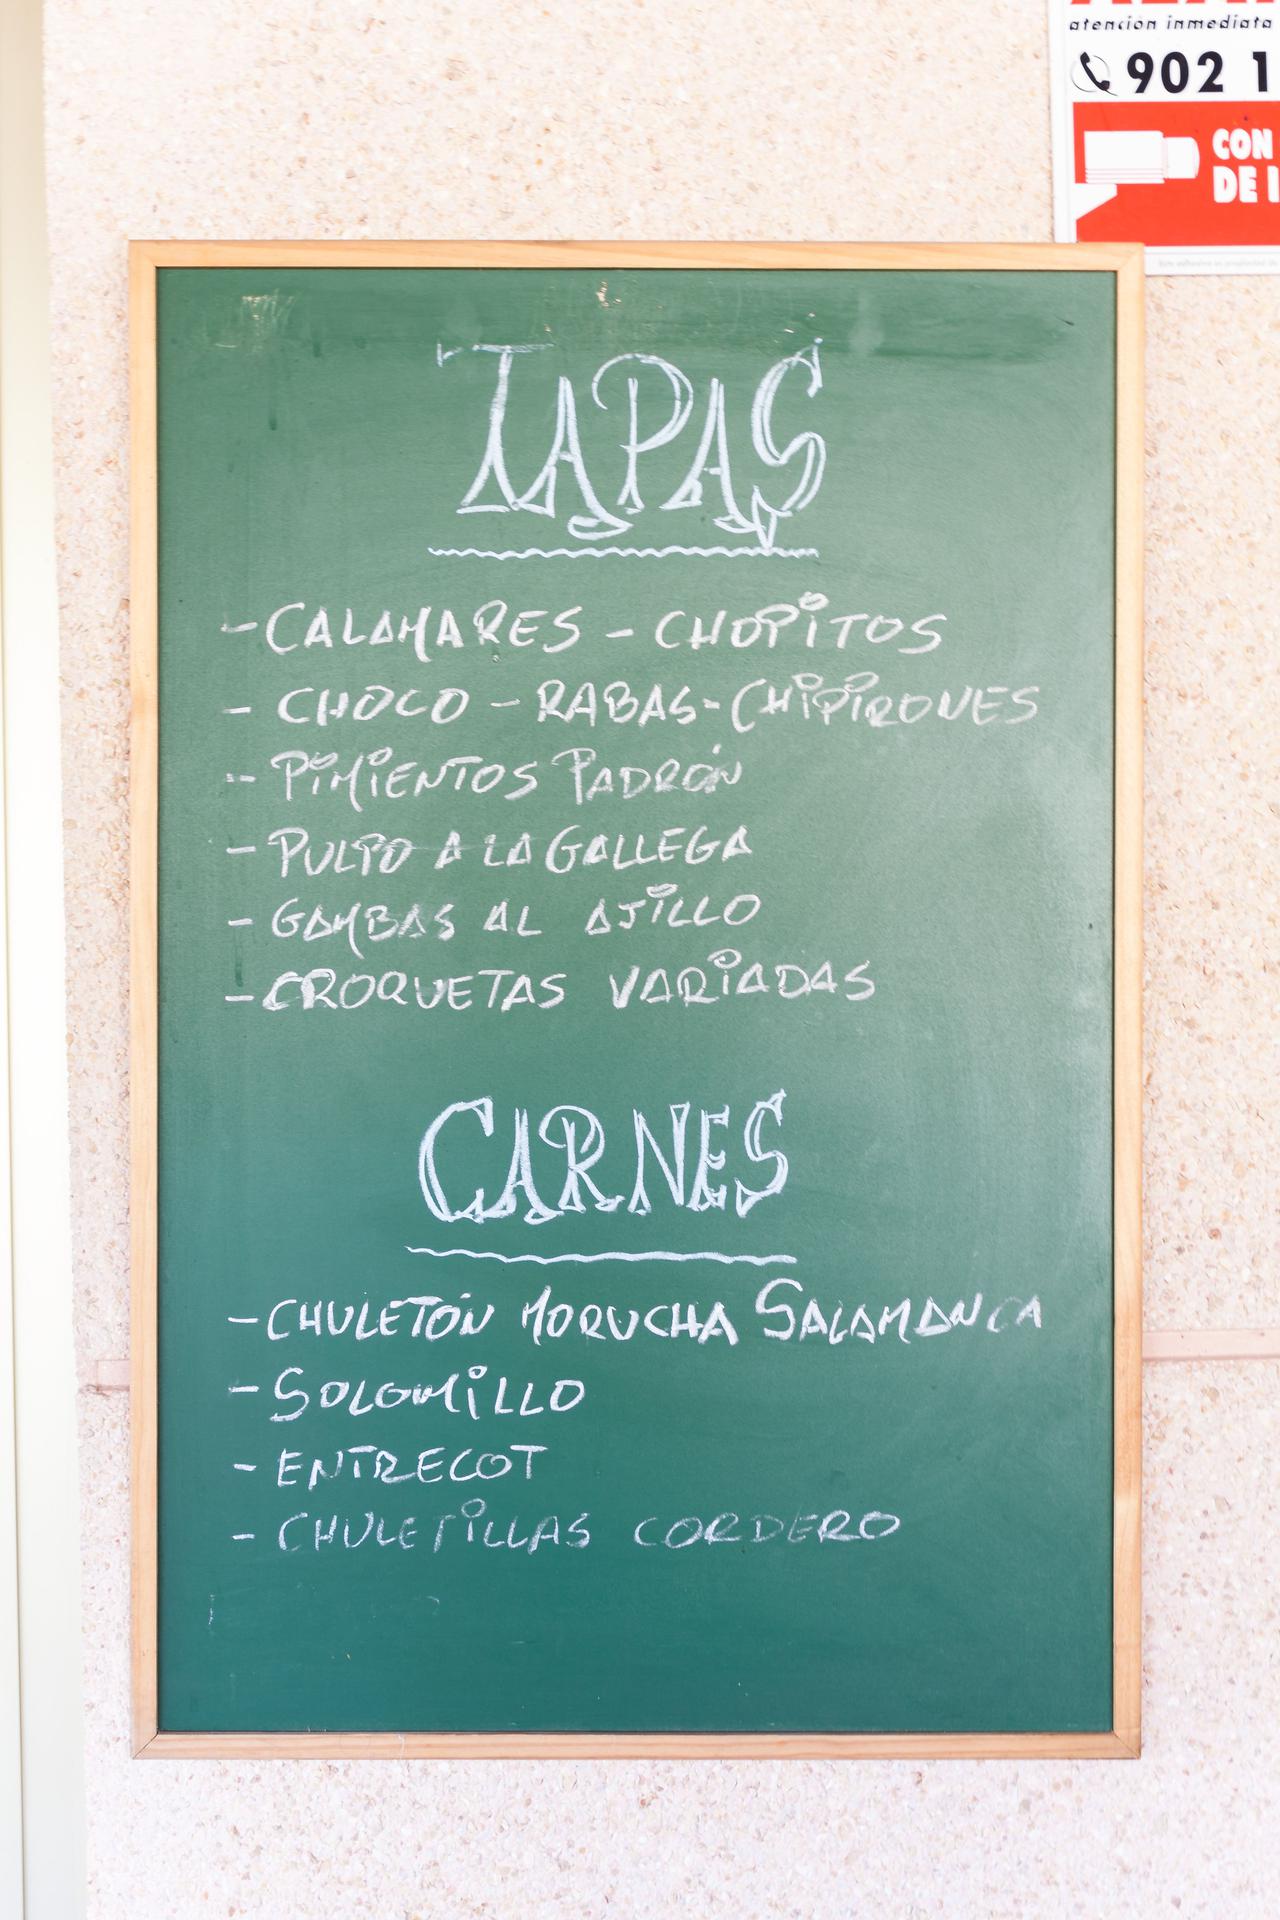 atencion inmediata
902 1
CON
DE I
TAPAS
- CALAMARES - CHOPITOS
- CHOCO - RABAS - CHIPIRONES
- PIMIENTOS PADRÓN
- PULPO A LA GALLEGA
- GAMBAS AL AJILLO
- CROQUETAS VARIADAS
CARNES
- CHULETÓN MORUCHA SALAMANCA
- SOLOMILLO
- ENTRECOT
- CHULETILLAS CORDERO